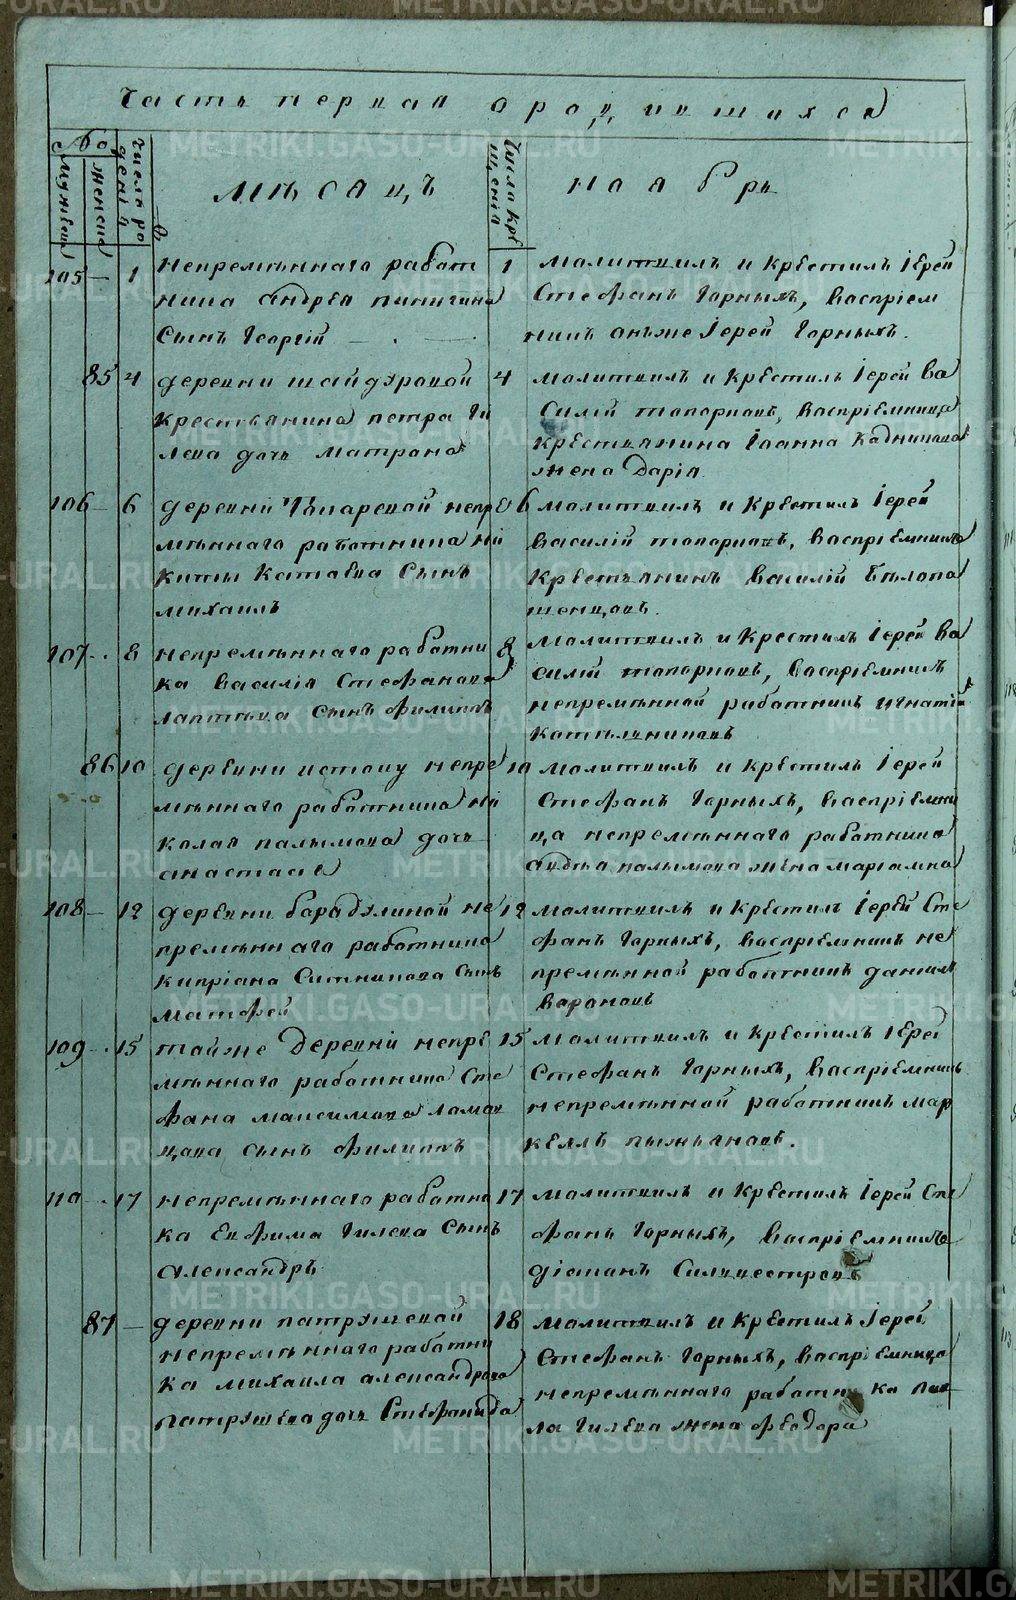 Часть первая о родившихся
№
мужеска
женска
числа рожденiя
МѢСЯЦЪ
числа крещенiя
НОЯБРЬ
105 – 1 непремѣннаго работ
ника андрея пинигина
Сынъ Георгiй
1 молитвилъ и крестилъ Iерей
Стефанъ Горныхъ, воспрiем
никъ онъже Iерей Горныхъ.
85 4 деревни шайдуровой
крестьянина петра Ги
лева дочь Матрона
4 молитвилъ и крестилъ Iерей ва
силiй топорковъ, воспрiемница
крестьянина Iоанна Кадникова
жена Дарiя
106 – 6 деревни непре
мѣннаго работника ни
киты Катаева Сынъ
михаилъ
6 молитвилъ и крестилъ Iерей
василiй топорковъ, воспрiемникъ
крестьянинъ василiй бѣлопа
шенцовъ.
107 8 непремѣннаго работни
ка василiя Стефанова
лаптева сынъ филиппъ
8 молитвилъ и крестилъ Iерей ва
силiй топорковъ, воспрiемникъ
непремѣнной работникъ игнатiй
котельниковъ
86 10 деревни истоку непре
мѣннаго работника ни
колая палымова дочь
анастасiя
10 молитвилъ и крестилъ Iерей
Стефанъ Горныхъ, воспрiемни
ца непремѣннаго работника
палымова жена марiамна
108 – 12 деревни бородулиной не
премѣннаго работника
кипрiана Ситникова сынъ
матфей
12 молитвилъ и крестилъ Iерей Сте
фанъ Горныхъ, воспрiемникъ не
премѣнной работникъ данiилъ
вороновъ
109 15 тойже деревни непре
мѣннаго работника Сте
фана максимова ломов
цова сынъ филиппъ
15 молитвилъ и крестилъ Iерей
Стефанъ Горныхъ, воспрiемникъ
непремѣнной работникъ мар
келлъ пыжьяновъ.
110 17 непремѣннаго работни
ка Ефима Гилева Сынъ
александръ
17 молитвилъ и крестилъ Iерей Сте
фанъ Горныхъ, воспрiемникъ
дiаконъ Силвестровъ
87 – деревни патрушевой
непремѣннаго работни
ка михаила александрова
патрушева дочь Стефанида
18 молитвилъ и крестилъ Iерей
Стефанъ Горныхъ, воспрiемница
непремѣннаго работника пав
ла Гилева жена феодора
METRIKI.GASO-URAL.RU